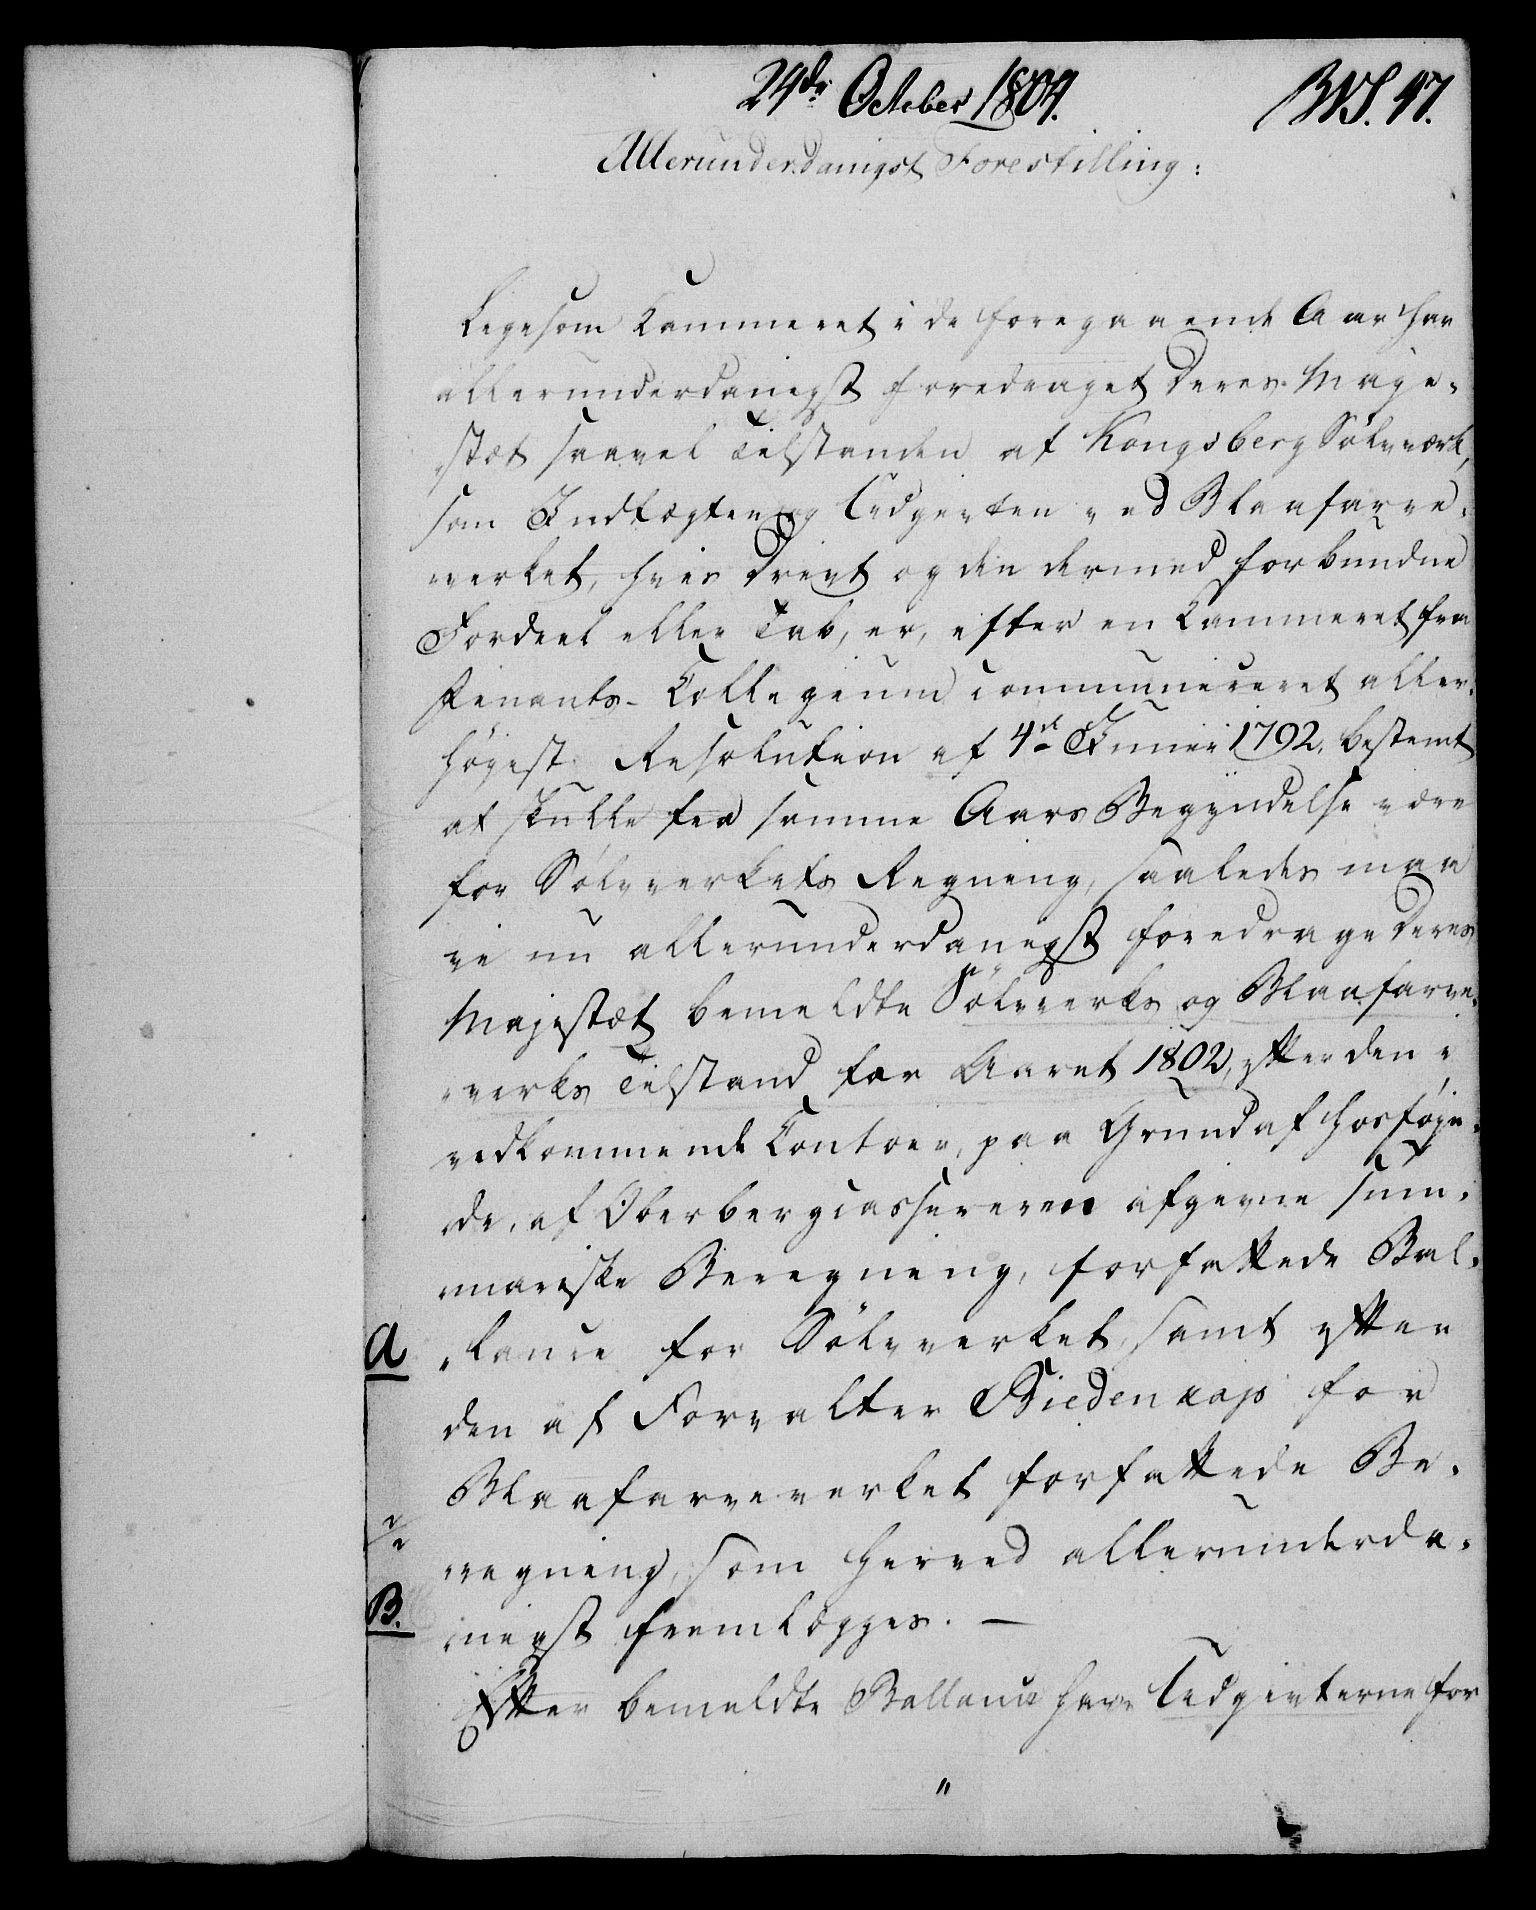 24de October 1804.
BVS. 47.
Allerunderdanigst Forestilling:
Ligesom Kammeret i de foregaaende Aar har
allerunderdanigst foredraget Deres Maje-
stæt saavel Tilstanden af Kongsberg Sølvværk,
som Indtægten og Udgivten ved Blaafarve-
verket, hvis Drivt og den dermed forbundne
Fordeel eller Tab, er, efter en Kammeret fra
Finants-Collegium communiceret aller-
høiest Resolution af 4de Junii 1792, bestemt
at skulle fra samme Aars Begyndelse være
for Sølvverkets Regning, saaledes maa
vi nu allerunderdanigst foredrage Deres
Majestæt bemeldte Sølvverks og Blaafarve-
verks Tilstand for Aaret 1802, efter den i
vedkommende Contoir, paa Grund af hosføie-
de, af Oberbergcassereren afgivne sum-
mariske Beregning, forfattede Bal-
A lance for Sølvverket, samt efter
den af Forvalter Biedencap for
Blaafarveverket forfattede Be-
regning, som herved allerunderda-
B. nigst fremlægges. —
Efter bemeldte Ballance har Udgivterne for
"